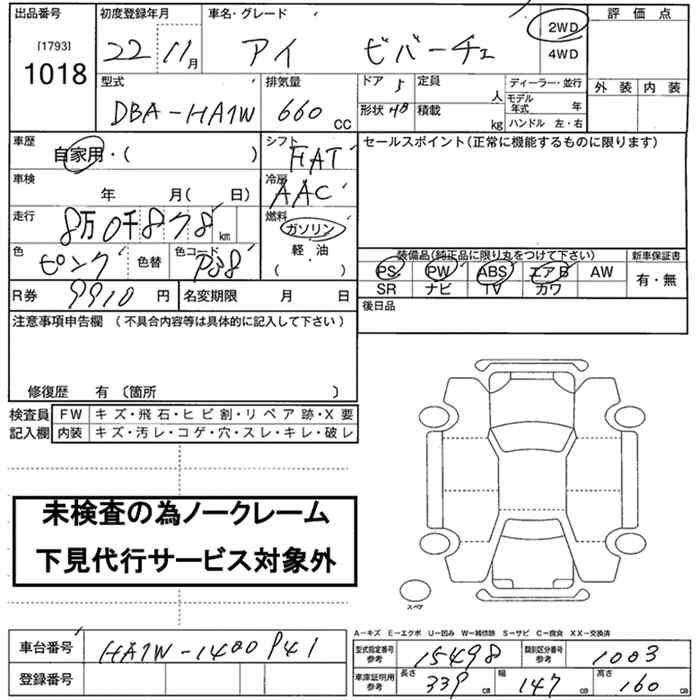 出品番号 初度登録年月 車名・グレード 評価点
[1793] 1018 22 11月 アイ ビバーチェ 2WD 4WD
型式 排気量 ドア 5 定員 人 ディーラー・並行 外装 内装
DBA-HA1W 660 CC 形状 4B 積載 kg モデル年式 年 ハンドル 左・右
車歴 シフト セールスポイント(正常に機能するものに限ります)
自家用・( ) FAT
車検 年 月( 日) 冷房 AAC
走行 8万0千878km 燃料 ガソリン・軽油 ( )
色 ピンク 色替 色コード P38 装備品(純正品に限り丸をつけて下さい) 新車保証書
PS PW ABS エアB AW 有・無
SR ナビ TV カワ
R券 9910円 名変期限 月 日 後日品
注意事項申告欄 (不具合内容等は具体的に記入して下さい)
修復歴 有 〔箇所 〕
検査員 FW キズ・飛石・ヒビ割・リペア跡・X要
記入欄 内装 キズ・汚レ・コゲ・穴・スレ・キレ・破レ
未検査の為ノークレーム
下見代行サービス対象外
スペア
A−キズ E−エクボ U−凹み W−補修跡 S−サビ C−腐食 XX−交換済
車台番号 HA1W-1400941 型式指定番号 参考 15498 類別区分番号 参考 1003
登録番号 車庫証明用 参考 長さ 339cm 幅 147cm 高さ 160cm